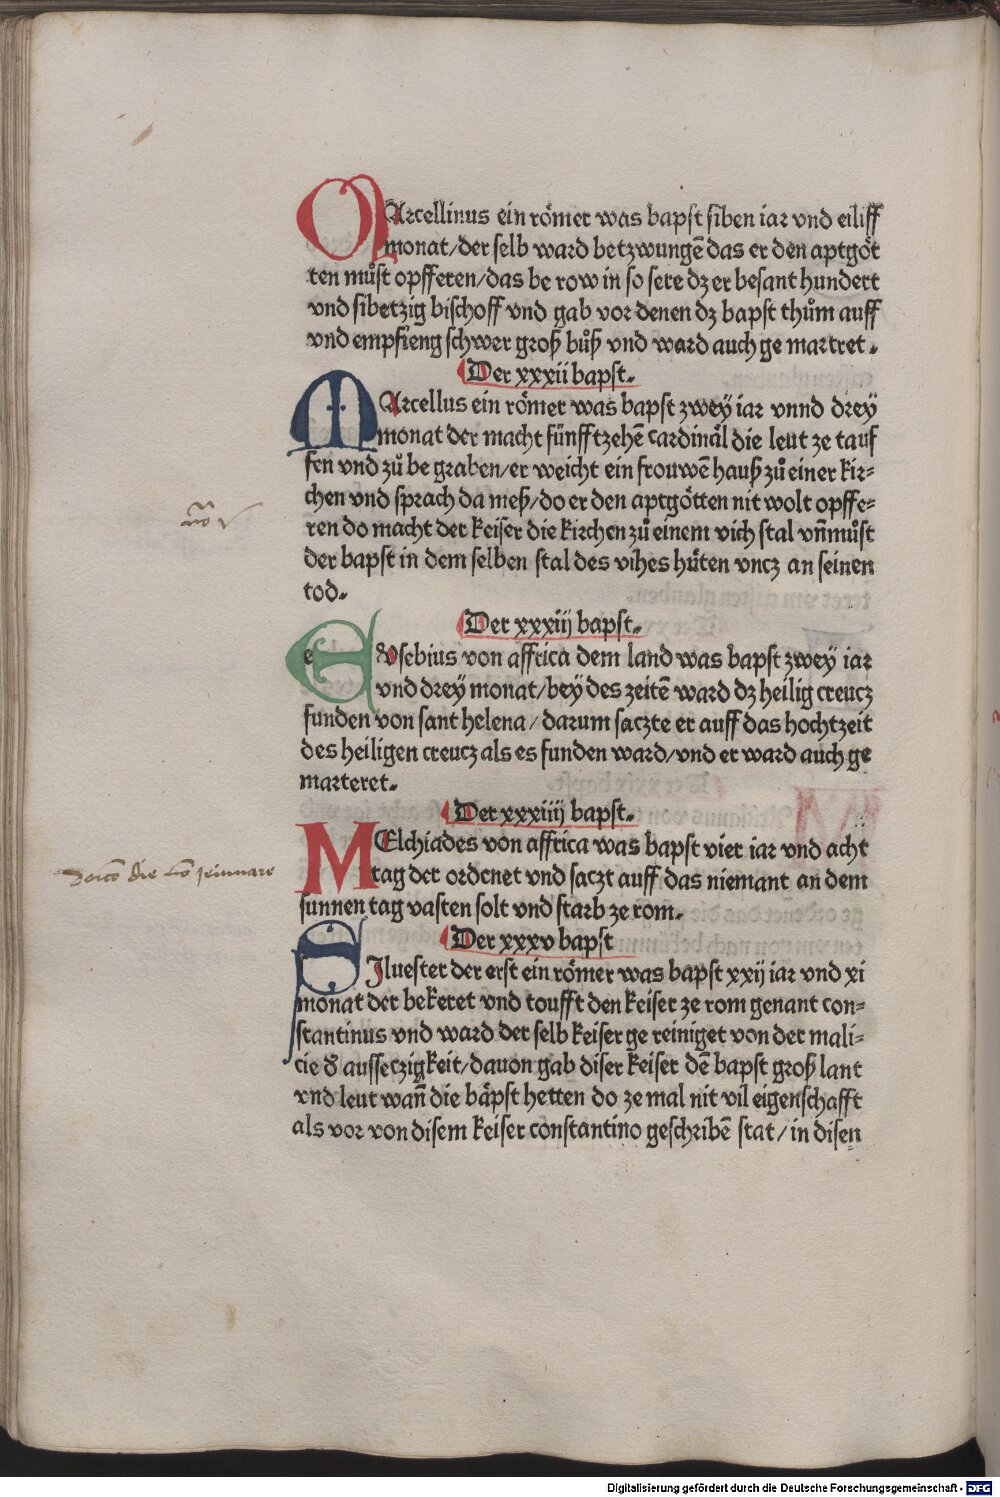 MArcellinus ein römer was bapst siben iar vnd eiliff
monat/der selb ward betzwungē das er den aptgöt
ten můst opfferen/das be row in so sere dz er besant hundert
vnd sibetzig bischoff vnd gab vor denen dz bapst thům auff
vnd empfieng schwer groß bůß vnd ward auch ge martret.
Der xxxii bapst.
MArcellus ein römer was bapst zwey iar vnnd drey
monat der macht fünfftzehē cardinäl die leut ze tauf
fen vnd zů be graben/er weicht ein frouwē hauß zů einer kir-
chen vnd sprach da meß/do er den aptgötten nit wolt opffe-
ren do macht der keiser die kirchen zů einem vich stal vn̄ můst
der bapst in dem selben stal des vihes hüten vncz an seinen
tod.
Der xxxiij bapst.
EVsebius von affrica dem land was bapst zwey iar
vnd drey monat/bey des zeitē ward dz heilig creucz
funden von sant helena/darum saczte er auff das hochtzeit
des heiligen creucz als es funden ward/vnd er ward auch ge
marteret.
Der xxxiiij bapst.
MElchiades von affrica was bapst vier iar vnd acht
tag der ordenet vnd saczt auff das niemant an dem
sunnen tag vasten solt vnd starb ze rom.
Der xxxv bapst
SIluester der erst ein römer was bapst xxij iar vnd xi
monat der bekeret vnd toufft den keiser ze rom genant con-
stantinus vnd ward der selb keiser ge reiniget von der mali-
cie d' ausseczigkeit/dauon gab diser keiser dē bapst groß lant
vnd leut wan̄ die bäpst hetten do ze mal nit vil eigenschafft
als vor von disem keiser constantino geschribē stat/in disen
Digitalisierung gefördert durch die Deutsche Forschungsgemeinschaft - DFG